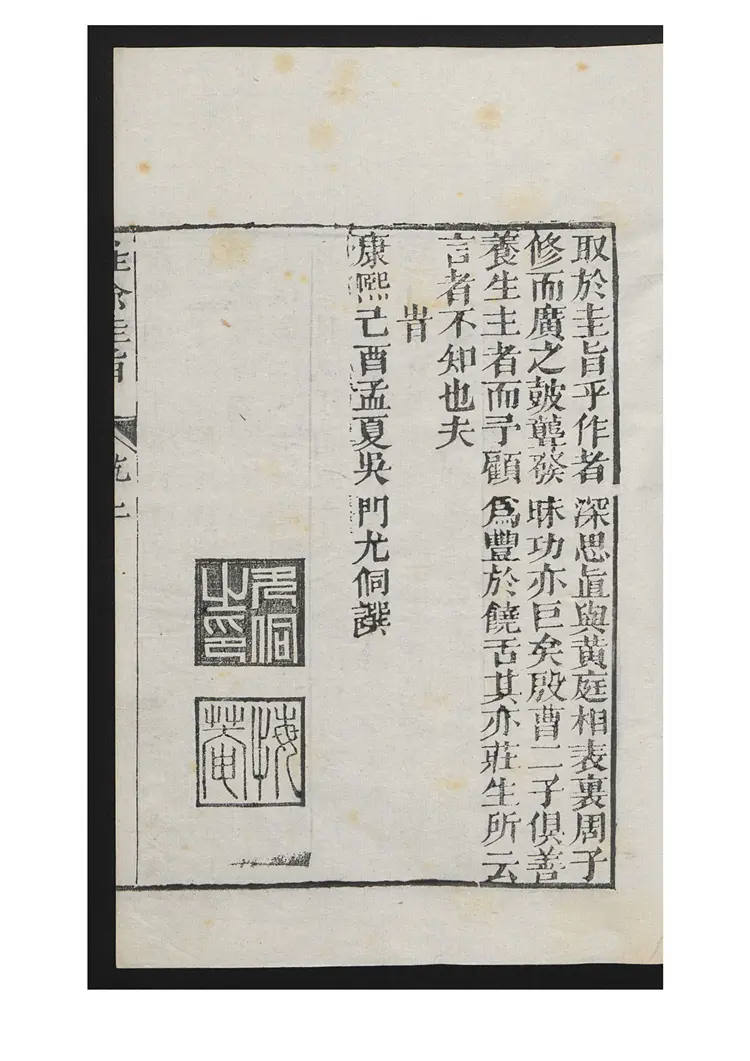 取於圭旨乎作者深思眞與黃庭相表裏周子
修而廣之皷聾發昧功亦巨矣殷曹二子俱善
養生主者而予顧爲豐於饒舌其亦莊生所云
言者不知也夫
旹
康熙己酉孟夏吳門尤侗譔
尤侗之印
悔菴
性命圭旨